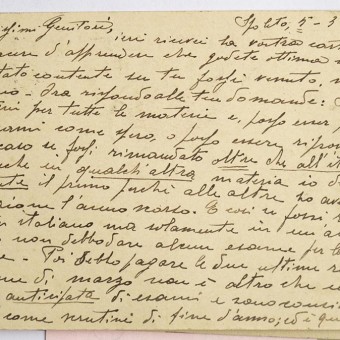 ...ssimi Genitori, Spoleto, 5-3
ieri ricevei la vostra car
cere d'apprendere che godete ottima
stato contento se tu fossi venuto,
Ora rispondo alle tue domande:
per tutte le materie e, posso esser
come spero, o posso essere ripro
caso se fossi rimandato oltre che all'it
che in qualch'altra materia io d
il primo perché alle altre ho av
zione l'anno scorso. E così se fossi
italiano ma solamente in un'a
non debbo dare alcun esame per l
Poi debbo pagare le due ultime r
di marzo non è altro che u
anticipata di esami e sono consi
come scrutini di fine d'anno; ed è qu